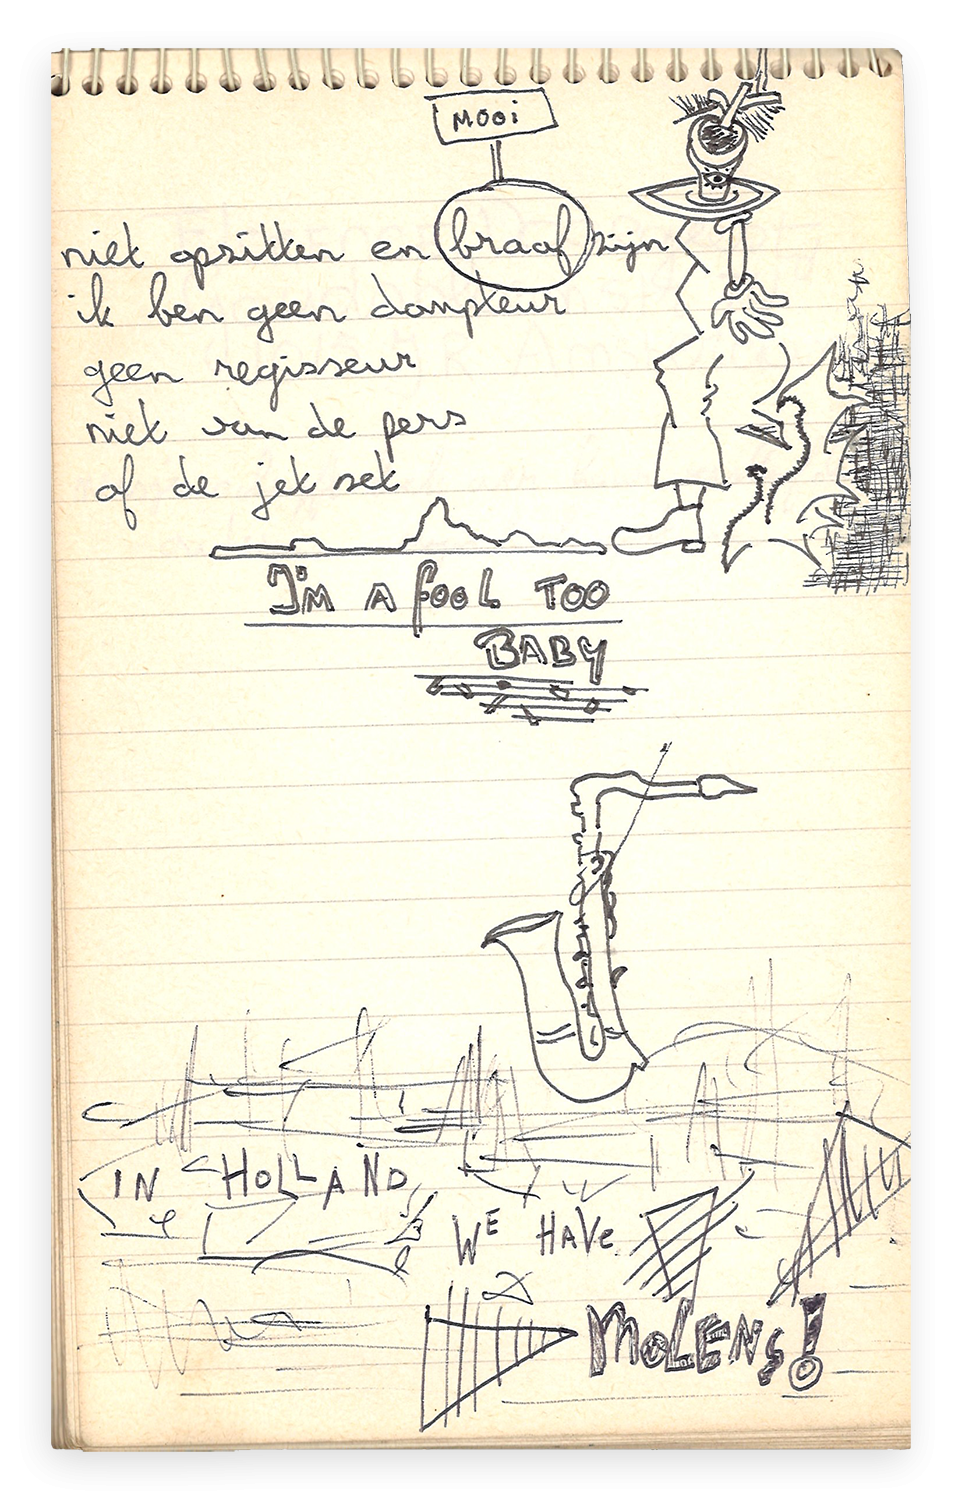 MOOi
niet opzitten en braaf zijn
ik ben geen dompteur
geen regisseur
niet van de pers
of de jet set
I'M A fOOL TOO
BABY
IN HOLLAND
WE HAVe
MOLENS!